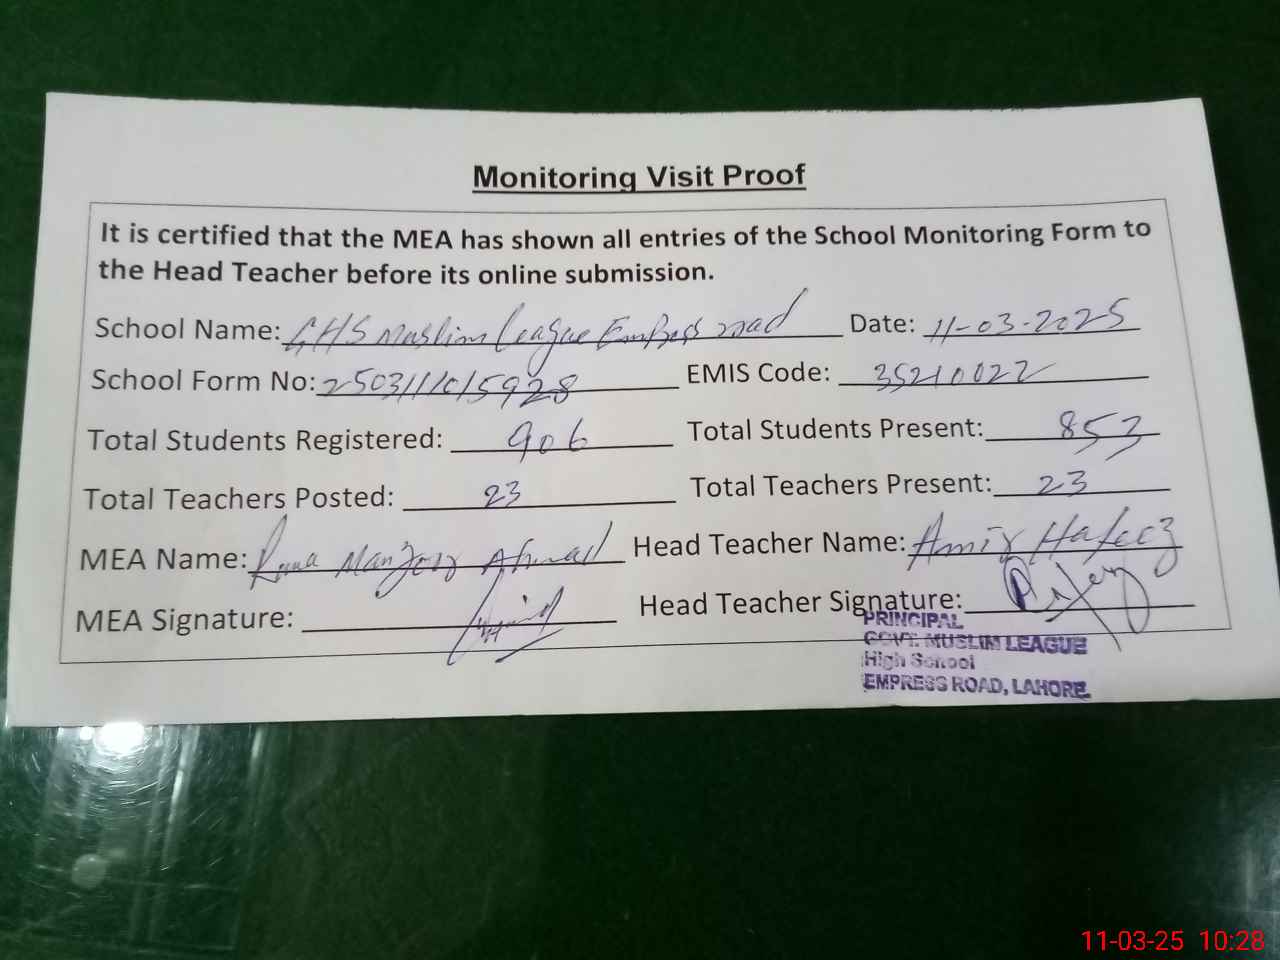 Monitoring Visit Proof
It is certified that the MEA has shown all entries of the School Monitoring Form to
the Head Teacher before its online submission.
School Name: GHS Muslim League Empress road Date: 11-03-2025
School Form No: 2503111015928 EMIS Code: 35210022
Total Students Registered: 906 Total Students Present: 853
Total Teachers Posted: 23 Total Teachers Present: 23
MEA Name: Rana Manzoor Ahmad Head Teacher Name: Amir Hafeez
MEA Signature: Head Teacher Signature:
PRINCIPAL
GOVT. MUSLIM LEAGUE
High School
EMPRESS ROAD, LAHORE.
11-03-25 10:28